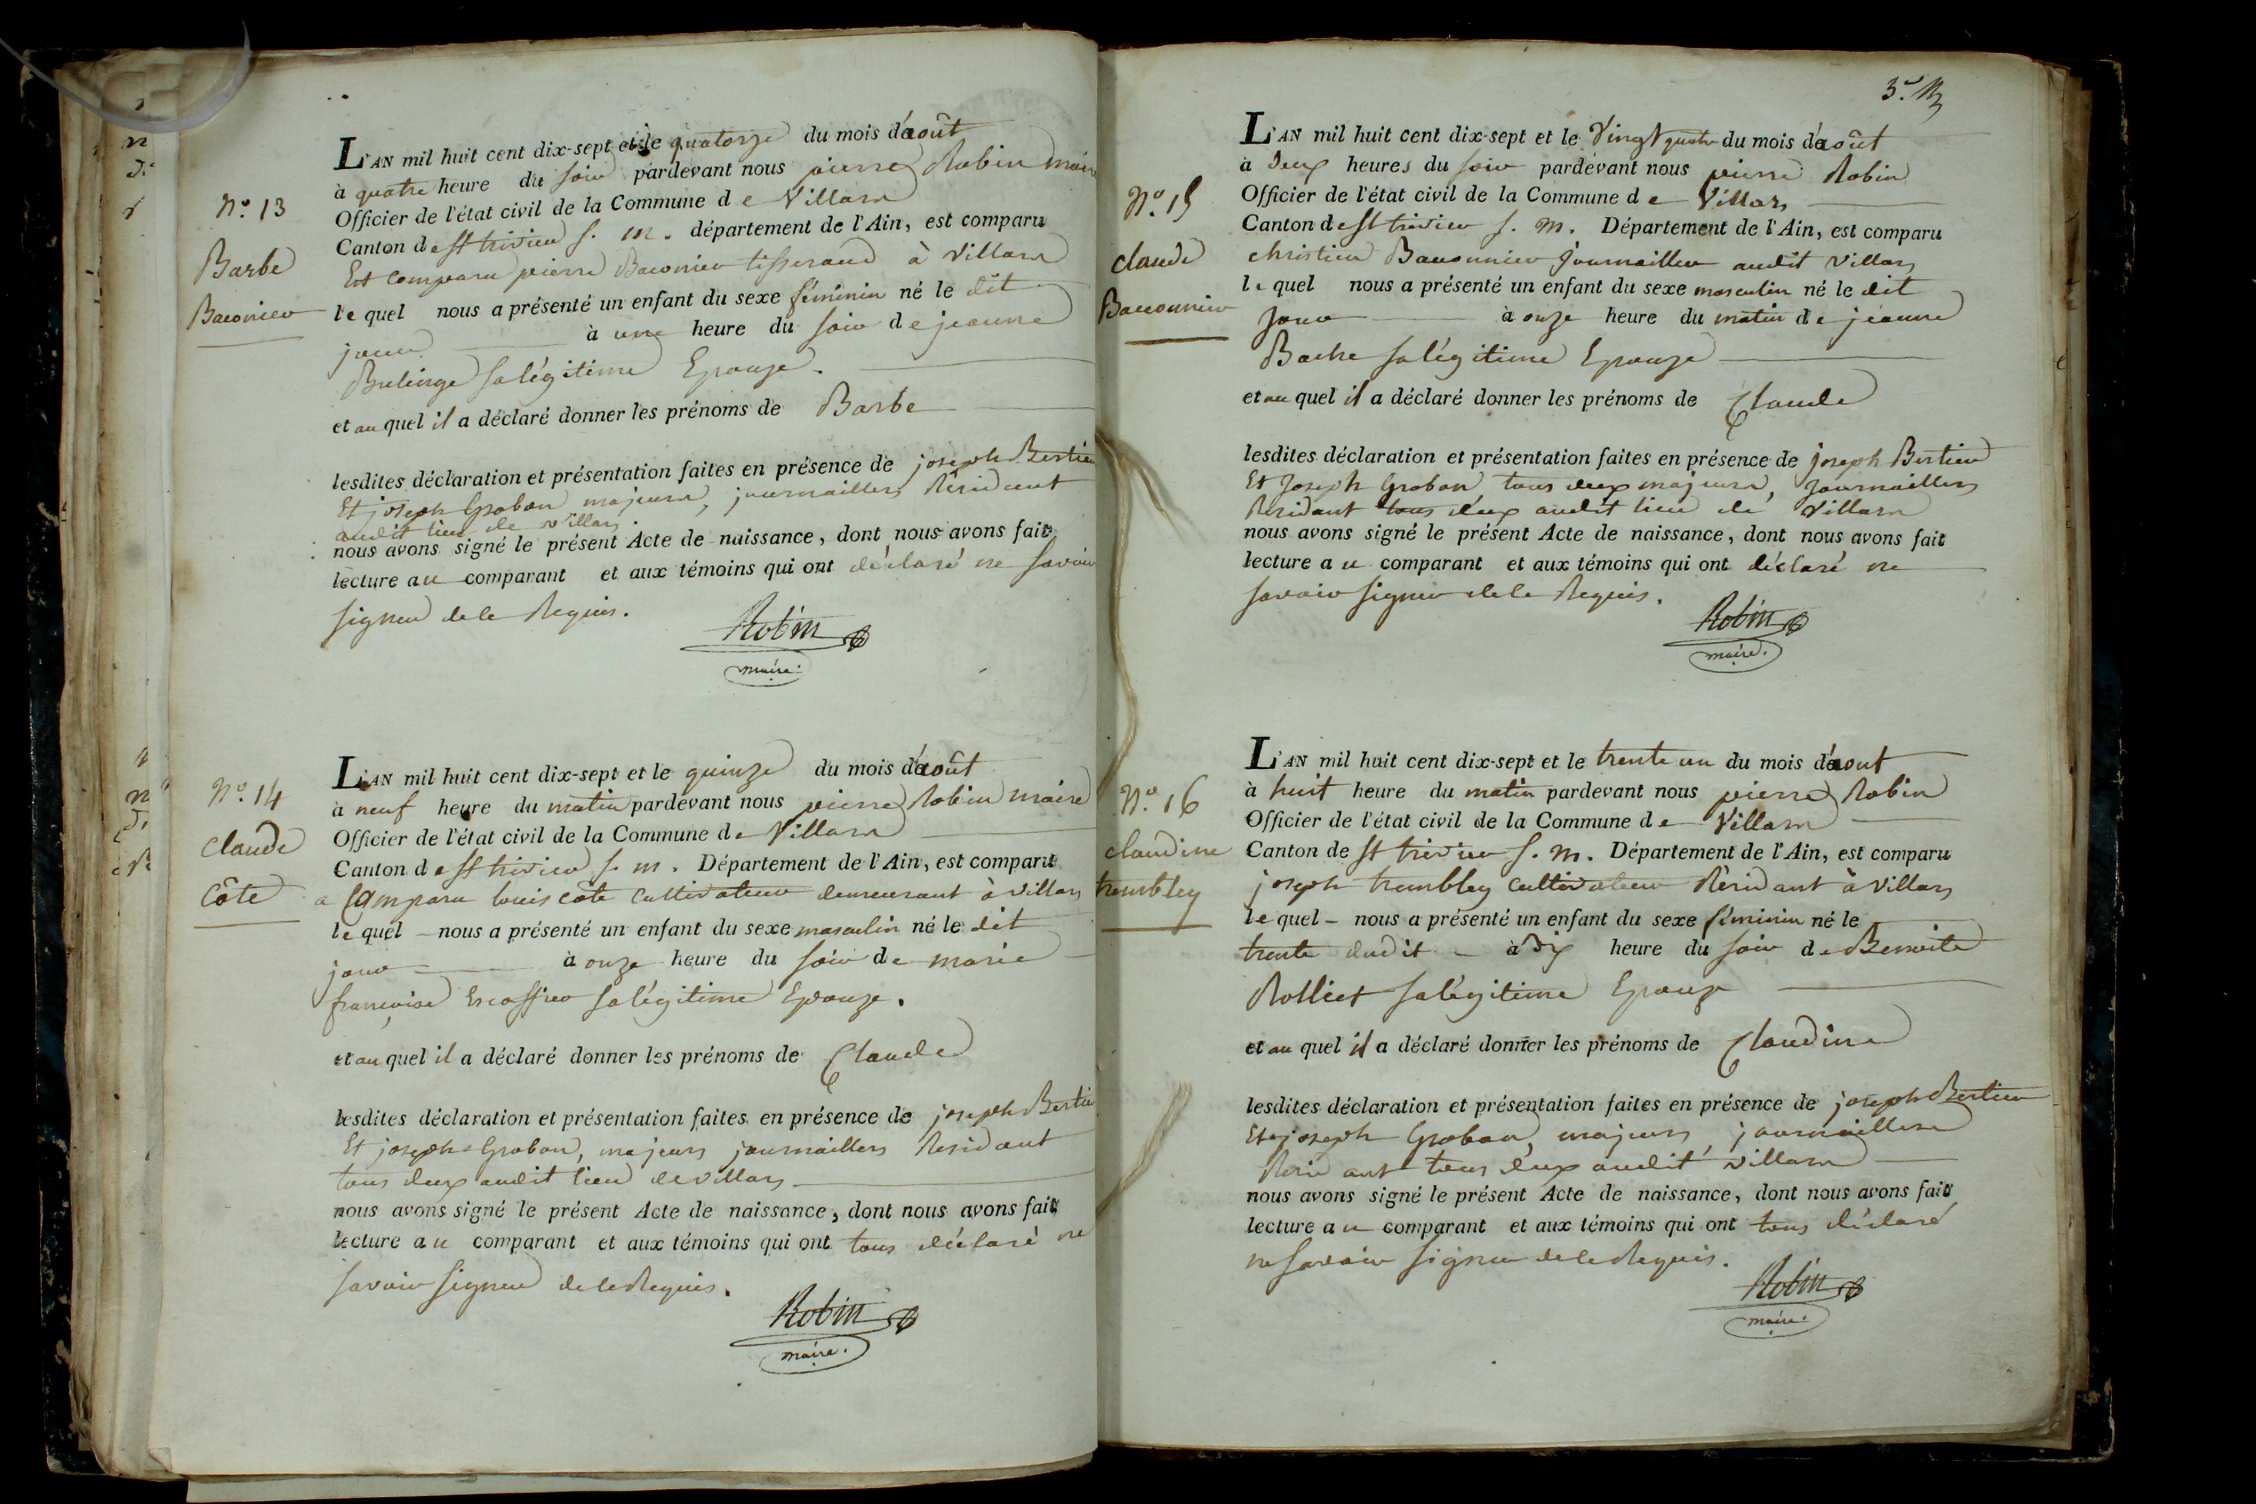 N.° 13
Barbe
Baconier
L'AN mil huit cent dix-sept et le quatorze du mois d'août
à quatre heure du soir pardevant nous pierre Robin maire
Officier de l'état civil de la Commune de Villars
Canton de st trivier s. m. département de l'Ain, est comparu
Est comparu pierre Baconier tisserand à Villars
lequel nous a présenté un enfant du sexe féminin né le dit
jour à une heure du soir de jeanne
Brelinge sa légitime Epouze.
et au quel il a déclaré donner les prénoms de Barbe
lesdites déclaration et présentation faites en présence de joseph Bertier
Et joseph Groban majeurs, journailliers Résidant
audit lieu de Villars.
nous avons signé le présent Acte de naissance, dont nous avons fait
lecture au comparant et aux témoins qui ont déclaré ne savoir
signer de le Requis.
Robin
maire.
N.° 14
Claude
Côte
L'AN mil huit cent dix-sept et le quinze du mois d'août
à neuf heure du matin pardevant nous pierre Robin maire
Officier de l'état civil de la Commune de Villars
Canton de st trivier s. m. Département de l'Ain, est comparu
a Comparu louis côte cultivateur demeurant à Villars
lequel nous a présenté un enfant du sexe masculin né le dit
jour à onze heure du soir de marie
françoise Escoffier sa légitime Epouze.
et au quel il a déclaré donner les prénoms de Claude
lesdites déclaration et présentation faites en présence de joseph Bertier
Et joseph Groban, majeurs journailliers Residant
tous deux audit lieu de Villars
nous avons signé le présent Acte de naissance, dont nous avons fait
lecture au comparant et aux témoins qui ont tous déclaré ne
savoir signer de le Requis.
Robin
maire.
N.° 15
claude
Bauconnier
L'AN mil huit cent dix-sept et le Vingt quatre du mois d'août
à deux heures du soir pardevant nous pierre Robin
Officier de l'état civil de la Commune de Villars
Canton de st trivier s. m. Département de l'Ain, est comparu
christien Bauconnier Journaillier audit Villars
lequel nous a présenté un enfant du sexe masculin né le dit
Jour à onze heure du matin de jeanne
Bache sa légitime Epouze
et au quel il a déclaré donner les prénoms de Claude
lesdites déclaration et présentation faites en présence de joseph Bertier
Et Joseph Groban tous deux majeurs, Journailliers
Résidant tous deux audit lieu de Villars
nous avons signé le présent Acte de naissance, dont nous avons fait
lecture au comparant et aux témoins qui ont déclaré ne
savoir signer de le Requis.
Robin
maire.
N.° 16
claudine
trembley
L'AN mil huit cent dix-sept et le trente un du mois d'aout
à huit heure du matin pardevant nous pierre Robin
Officier de l'état civil de la Commune de Villars
Canton de st trivier s. m. Département de l'Ain, est comparu
joseph trembley cultivateur Résidant à Villars
lequel nous a présenté un enfant du sexe féminin né le
trente dudit à dix heure du soir de Benoite
Rolliet sa légitime Epouze
et au quel il a déclaré donner les prénoms de Claudine
lesdites déclaration et présentation faites en présence de joseph Bertier
Et joseph Groban, majeurs, journailliers
Résidant tous deux audit Villars
nous avons signé le présent Acte de naissance, dont nous avons fait
lecture au comparant et aux témoins qui ont tous déclaré
ne savoir signer de le Requis.
Robin
maire.